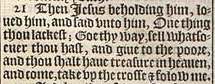 21 Then Iesus beholding him, lo-
ued him, and said vnto him, One thing
thou lackest; Goe thy way, sell whatso-
euer thou hast, and giue to the poore,
and thou shalt haue treasure in heauen,
and come, take vp the crosse & folow me.